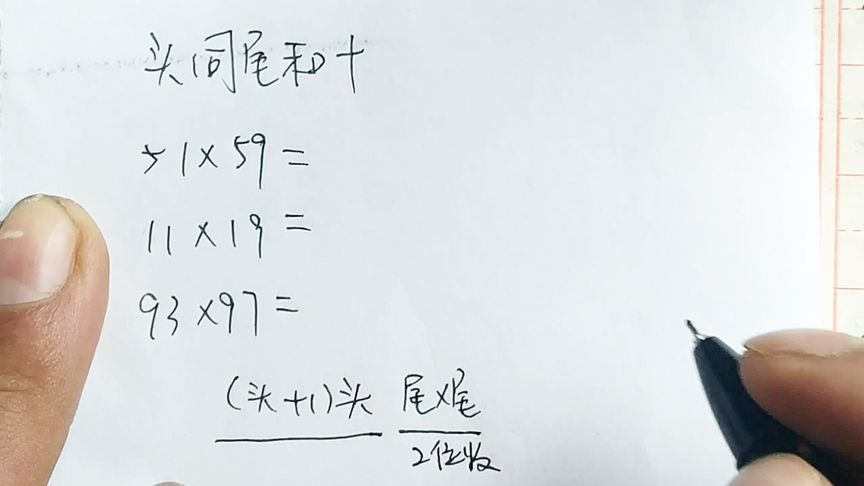 头同尾和十
51×59=
11×19=
93×97=
(头+1)头 尾×尾
2位数